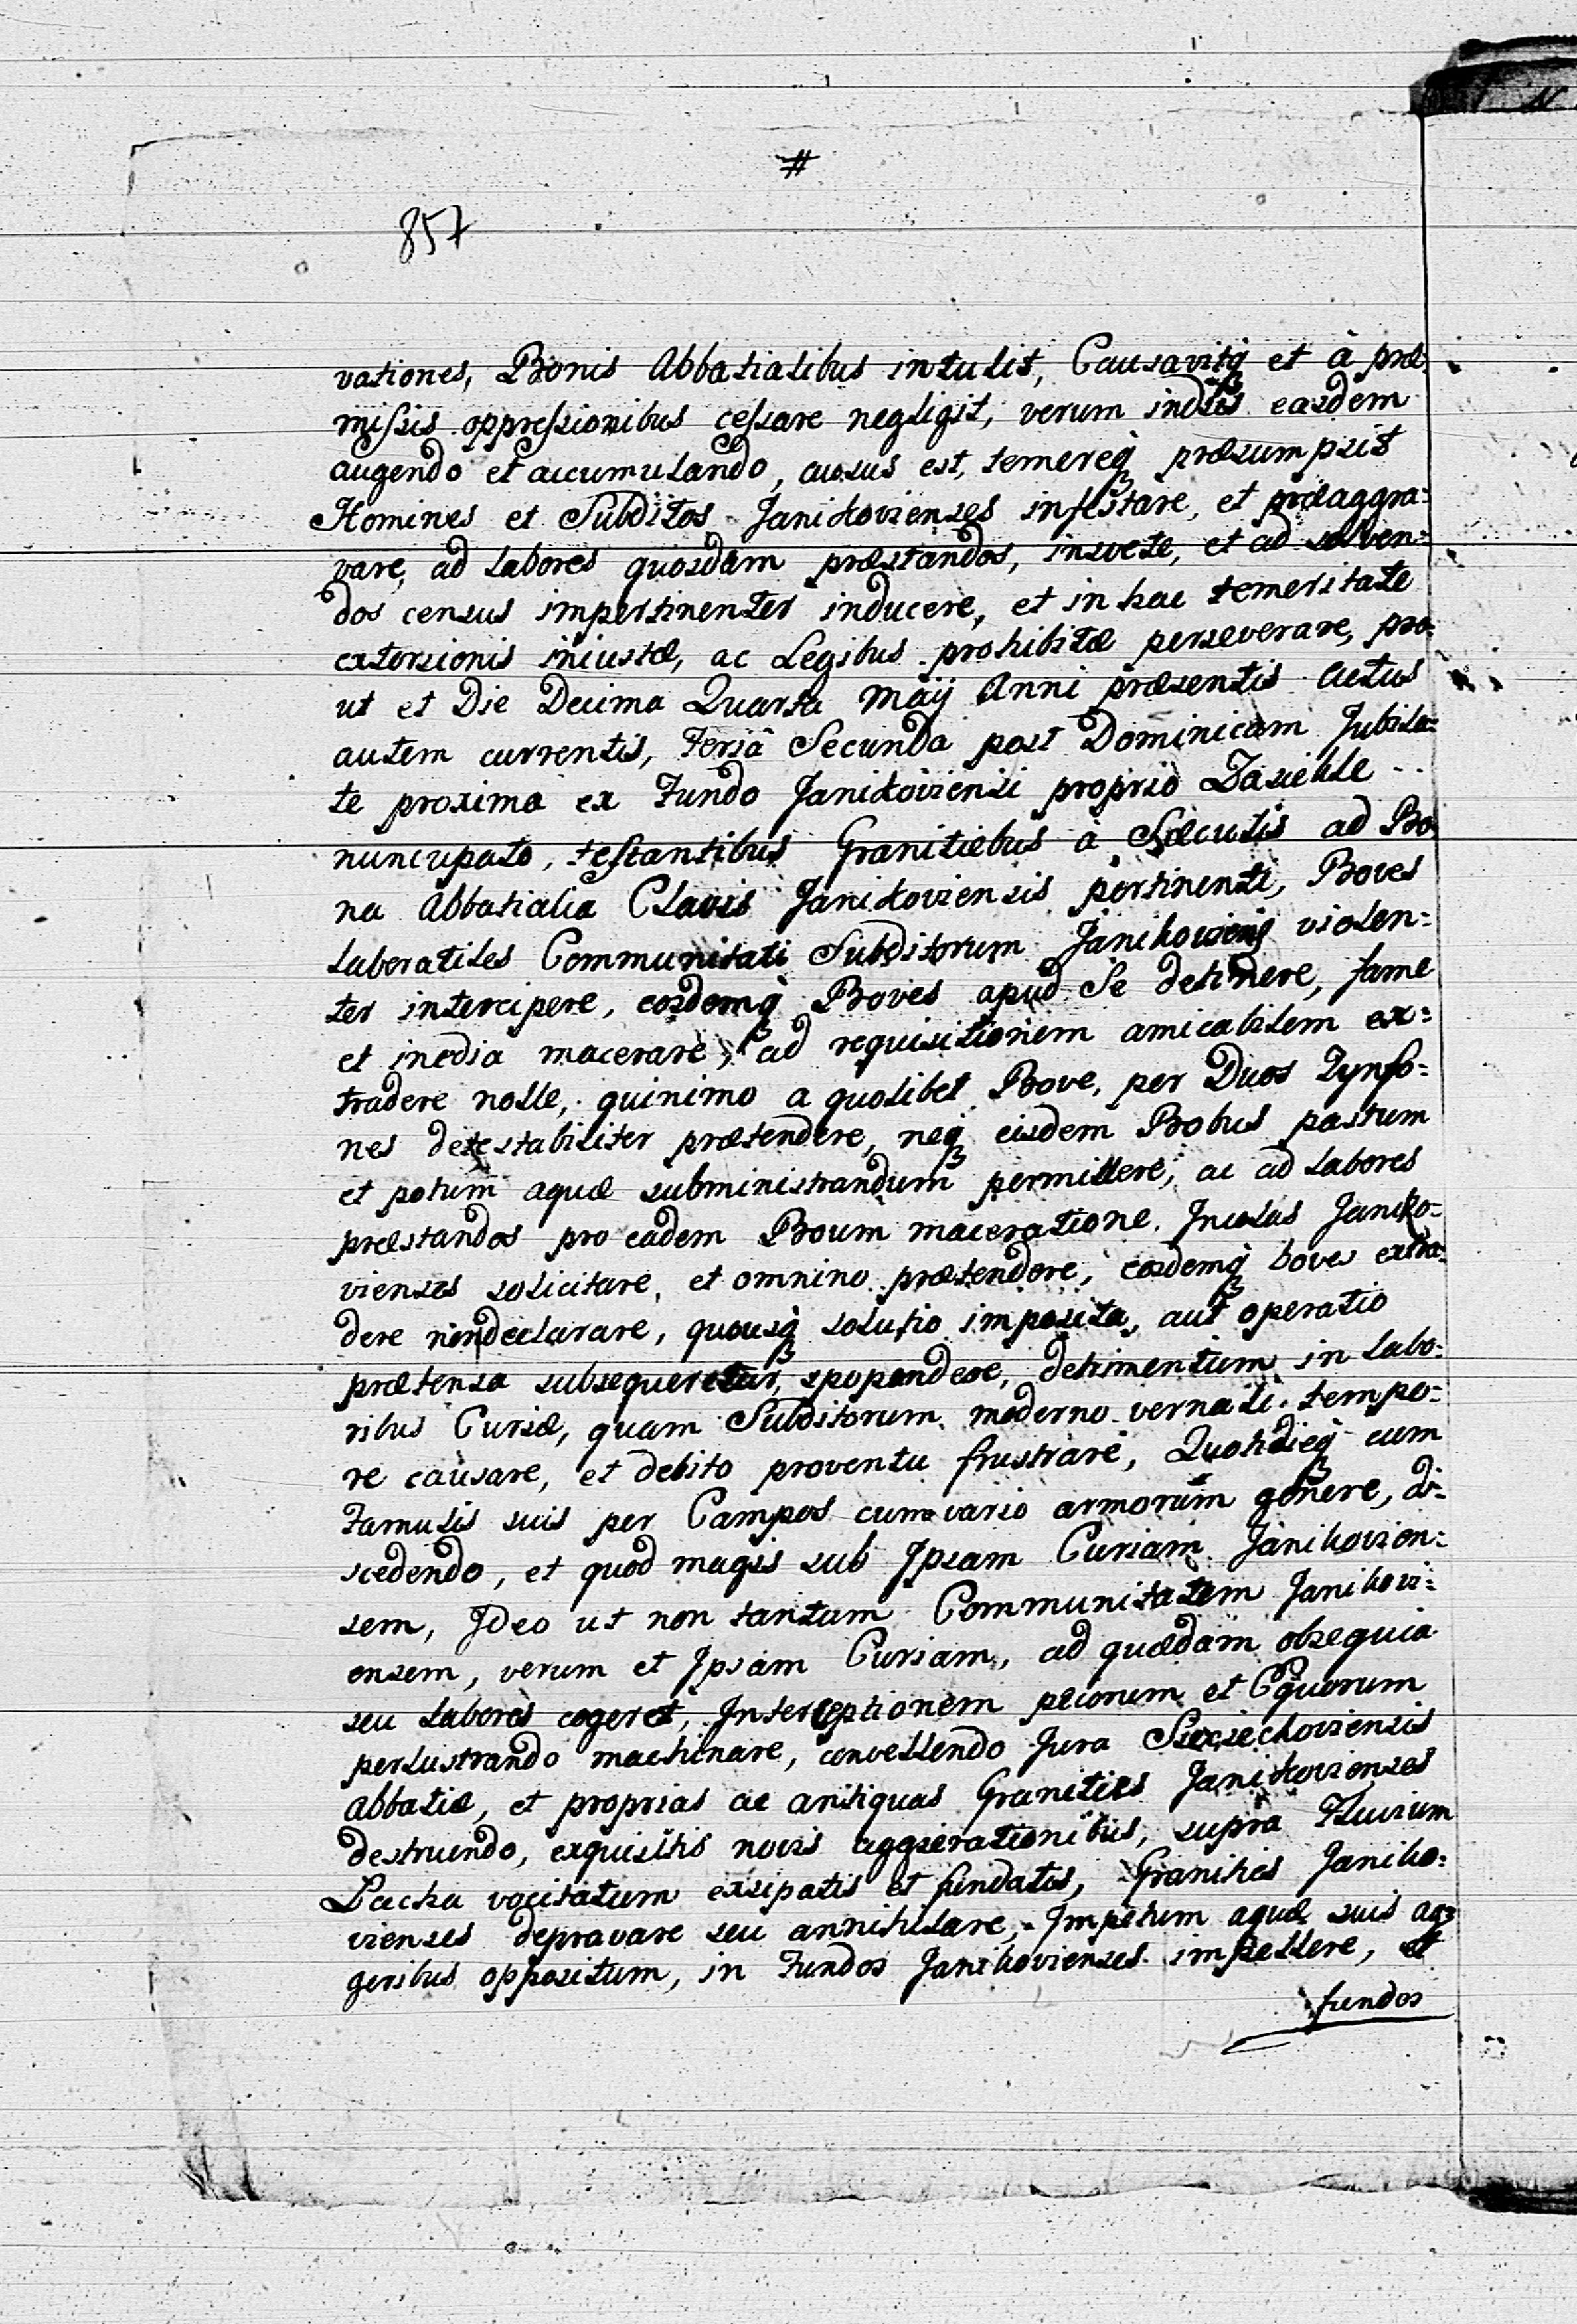 #
857
vationes, Bonis Abbatialibus intulit, Causavitq et à præ
missis oppressionibus cessare negligit, verum indies easdem
augendo et accumulando, ausus est, temereq præsumpsit
Homines et Subditos Janikovienses infestare, et præaggra=
vare, ad labores quosdam præstandos, insvete, et ad solven=
dos census impertinenter inducere, et in hac temeritate
extorsionis iniustæ, ac Legibus prohibitæ perseverare, pro
ut et Die Decima Quarta Maÿ Anni præsentis Actus
autem currentis, Feriâ Secunda post Dominicam Jubila=
te proxima ex Fundo Janikoviensi proprio
nuncupato, testantibus Granitiebus à Sæculis ad Bo
na Abbatialia Clavis Janikoviensis pertinenti, Boves
laboratiles Communitati Subditorum violen=
ter intercipere, eosdemq Boves apud Se detinere, fame
et inedia macerare, ad requisitionem amicabilem ex=
tradere nolle, quinimo a quolibet Bove, per Duos Tynfo=
nes detestabiliter prætendere, neq eisdem Bobus pastum
et potum aquæ subministrandum permittere, ac ad labores
præstandos pro eadem Boum maceratione. Incolas Janiko=
vienses solicitare, et omnino prætendere, eosdemq boves extra=
dere nondeclarare, quousq solutio imposita, aut operatio
prætensa subsequeretur, spopondere, detrimentum in labo=
ribus Curiæ, quam Subditorum moderno vernali tempo=
re causare, et debito proventu frustrare, Quotidieq cum
Famulis suis per Campos cum vario armorum genere, di=
scedendo, et quod magis sub Ipsam Curiam Janikovien=
sem, Ideo ut non tantum Communitatem Janikovi=
ensem, verum et Ipsam Curiam, ad quædam obsequia
seu labores cogeret, Interceptionem pecorum et Equorum
perlustrando machinare, convellendo Jura Sieciechoviensis
Abbatiæ, et proprias ac antiquas Granities Janikovienses
destruendo, exquisitis novis aggerationibus, supra Fluvium
vocitatum exsipatis et fundatis, Granities Janiko=
vienses depravare seu annihilare, Impetum aquæ suis ag=
geribus oppositum, in Fundos Janikovienses impellere, et
fundos